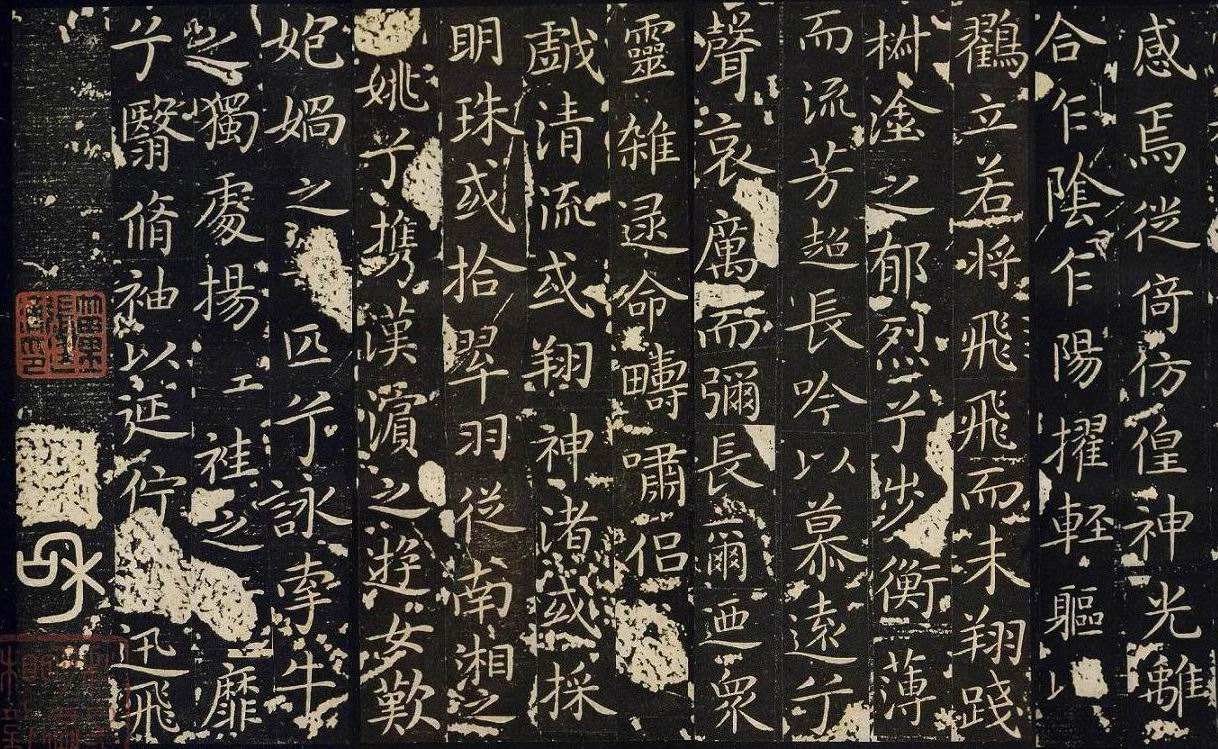 感焉徙倚彷徨神光離
合乍陰乍陽擢輕軀以
鶴立若將飛飛而未翔踐
椒塗之郁烈兮步衡薄
而流芳超長吟以慕遠兮
聲哀厲而彌長爾迺眾
靈雜遝命疇嘯侶
戲清流或翔神渚或採
明珠或拾翠羽從南湘之
姚兮攜漢濱之遊女歎
媧之匹兮詠牽牛
之獨處揚袿之靡
兮翳脩袖以延佇迅飛